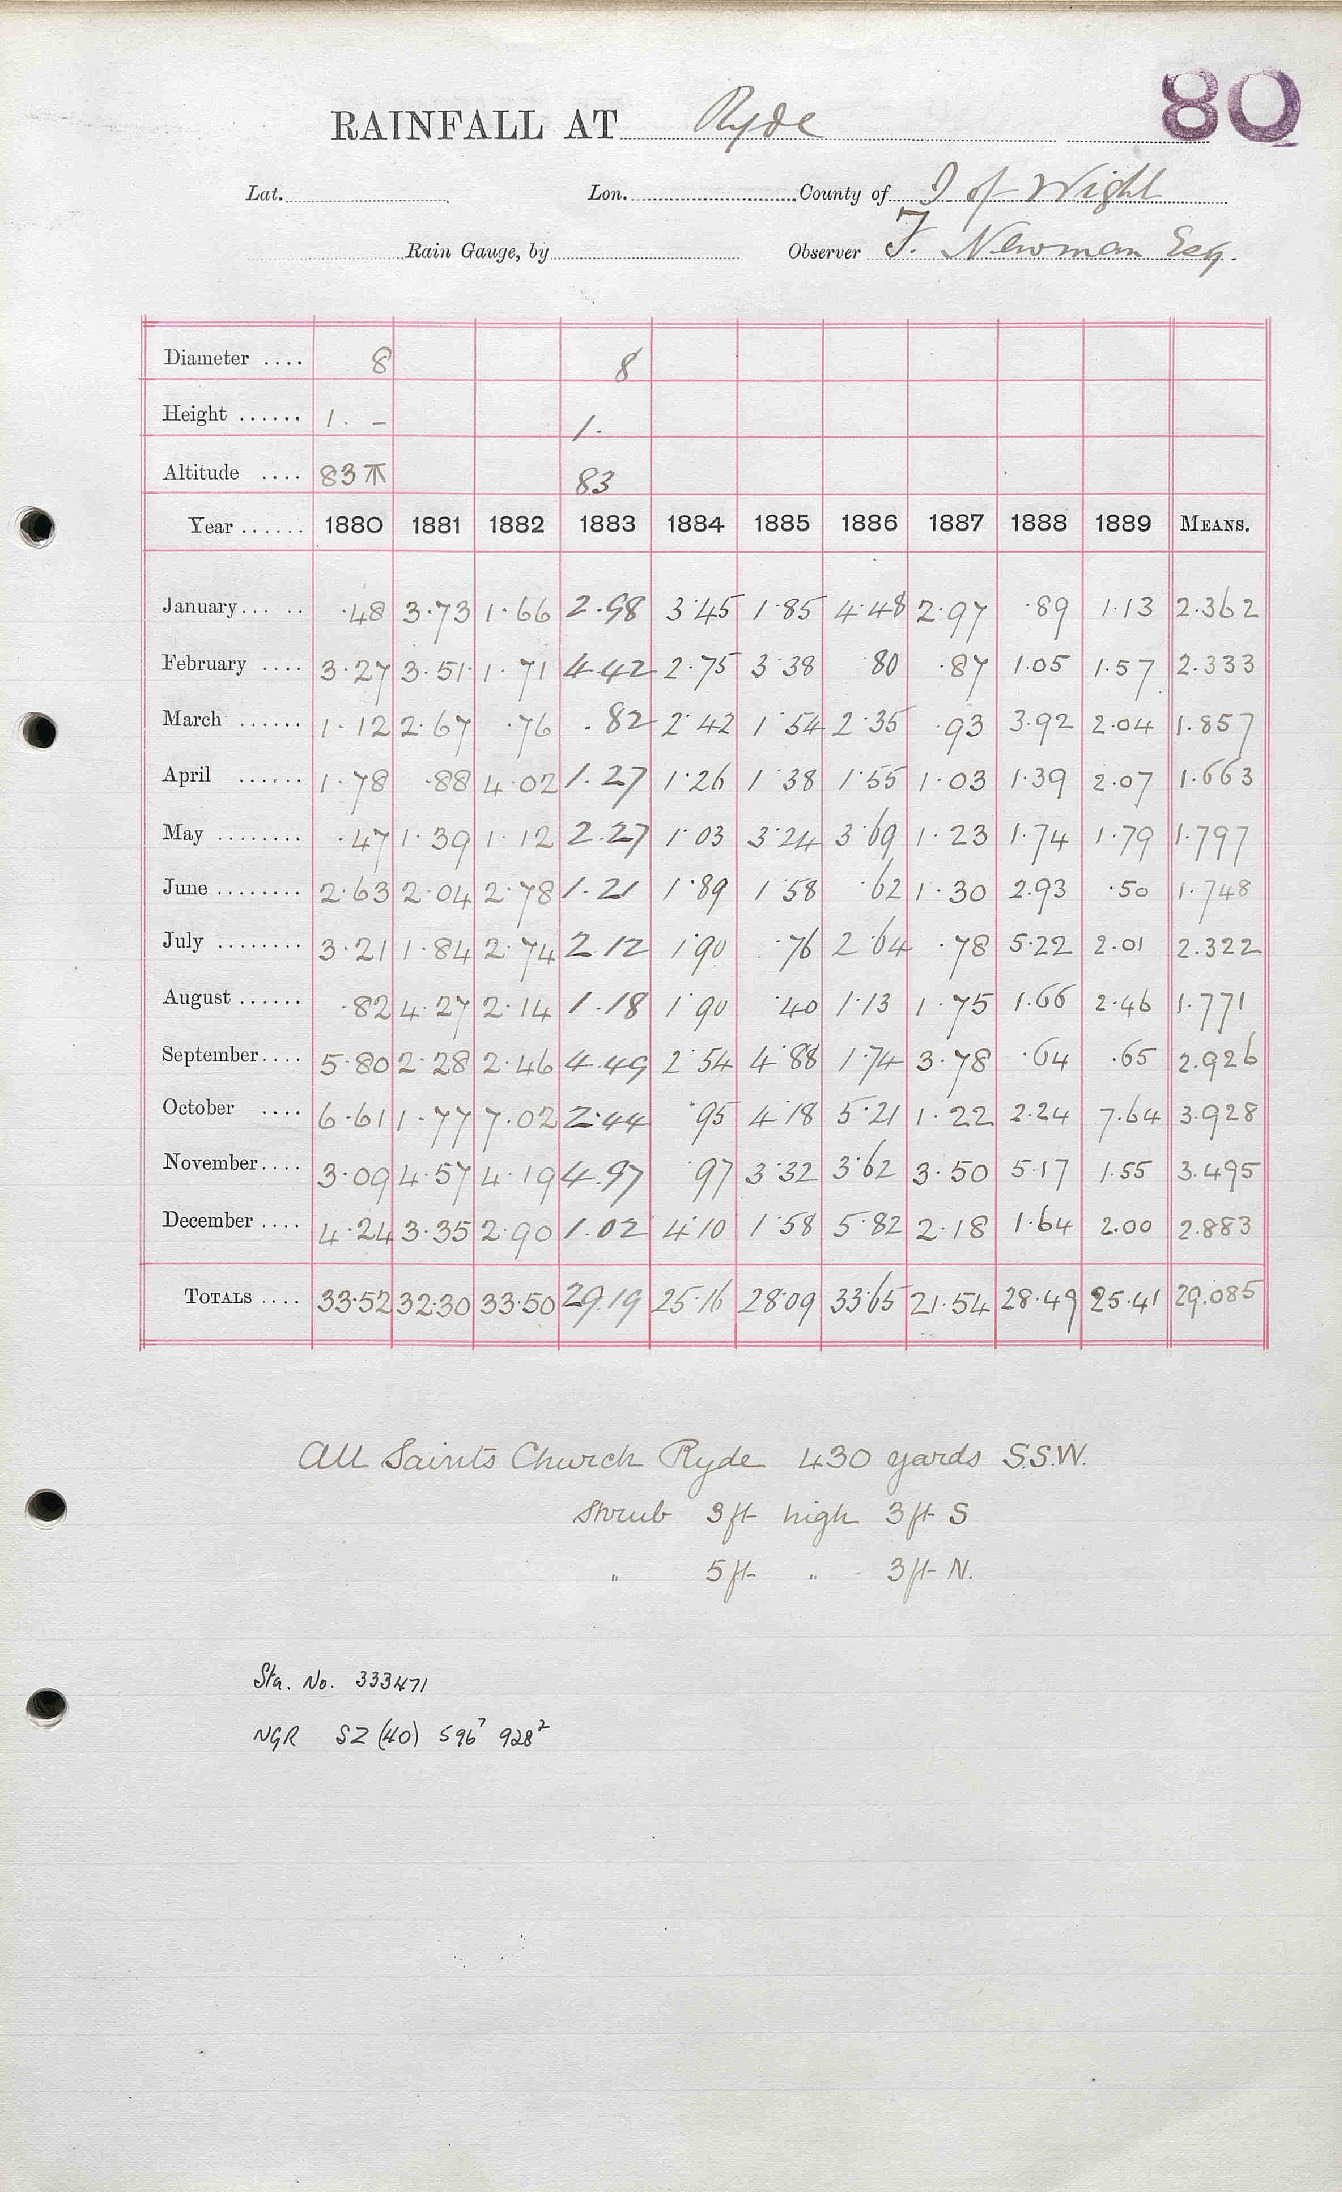 80
RAINFALL AT Ryde
Lat. Lon. County of I of Wight
Rain Gauge, by Observer F. Newman Esq.
Diameter .... 8 8
Height ...... 1. - 1.
Altitude .... 83 83
Year ...... 1880 1881 1882 1883 1884 1885 1886 1887 1888 1889 MEANS.
January... .. .48 3.73 1.66 2.98 3.45 1.85 4.48 2.97 .89 1.13 2.362
February .... 3.27 3.51 1.71 4.42 2.75 3.38 .80 .87 1.05 1.57 2.333
March ...... 1.12 2.67 .76 .82 2.42 1.54 2.35 .93 3.92 2.04 1.857
April ...... 1.78 .88 4.02 1.27 1.26 1.38 1.55 1.03 1.39 2.07 1.663
May ........ .47 1.39 1.12 2.27 1.03 3.24 3.69 1.23 1.74 1.79 1.797
June ........ 2.63 2.04 2.78 1.21 1.89 1.58 .62 1.30 2.93 .50 1.748
July ........ 3.21 1.84 2.74 2.12 1.90 .76 2.64 .78 5.22 2.01 2.322
August ...... .82 4.27 2.14 1.18 1.90 .40 1.13 1.75 1.66 2.46 1.771
September.... 5.80 2.28 2.46 4.49 2.54 4.88 1.74 3.78 .64 .65 2.926
October .... 6.61 1.77 7.02 2.44 .95 4.18 5.21 1.22 2.24 7.64 3.928
November.... 3.09 4.57 4.19 4.97 .97 3.32 3.62 3.50 5.17 1.55 3.495
December .... 4.24 3.35 2.90 1.02 4.10 1.58 5.82 2.18 1.64 2.00 2.883
TOTALS .... 33.52 32.30 33.50 29.19 25.16 28.09 33.65 21.54 28.49 25.41 29.085
All Saints Church Ryde 430 yards S.S.W.
Shrub 3 ft high 3 ft S
" 5 ft " 3 ft N.
Sta. No. 333471
NGR SZ (40) 596⁷ 928²